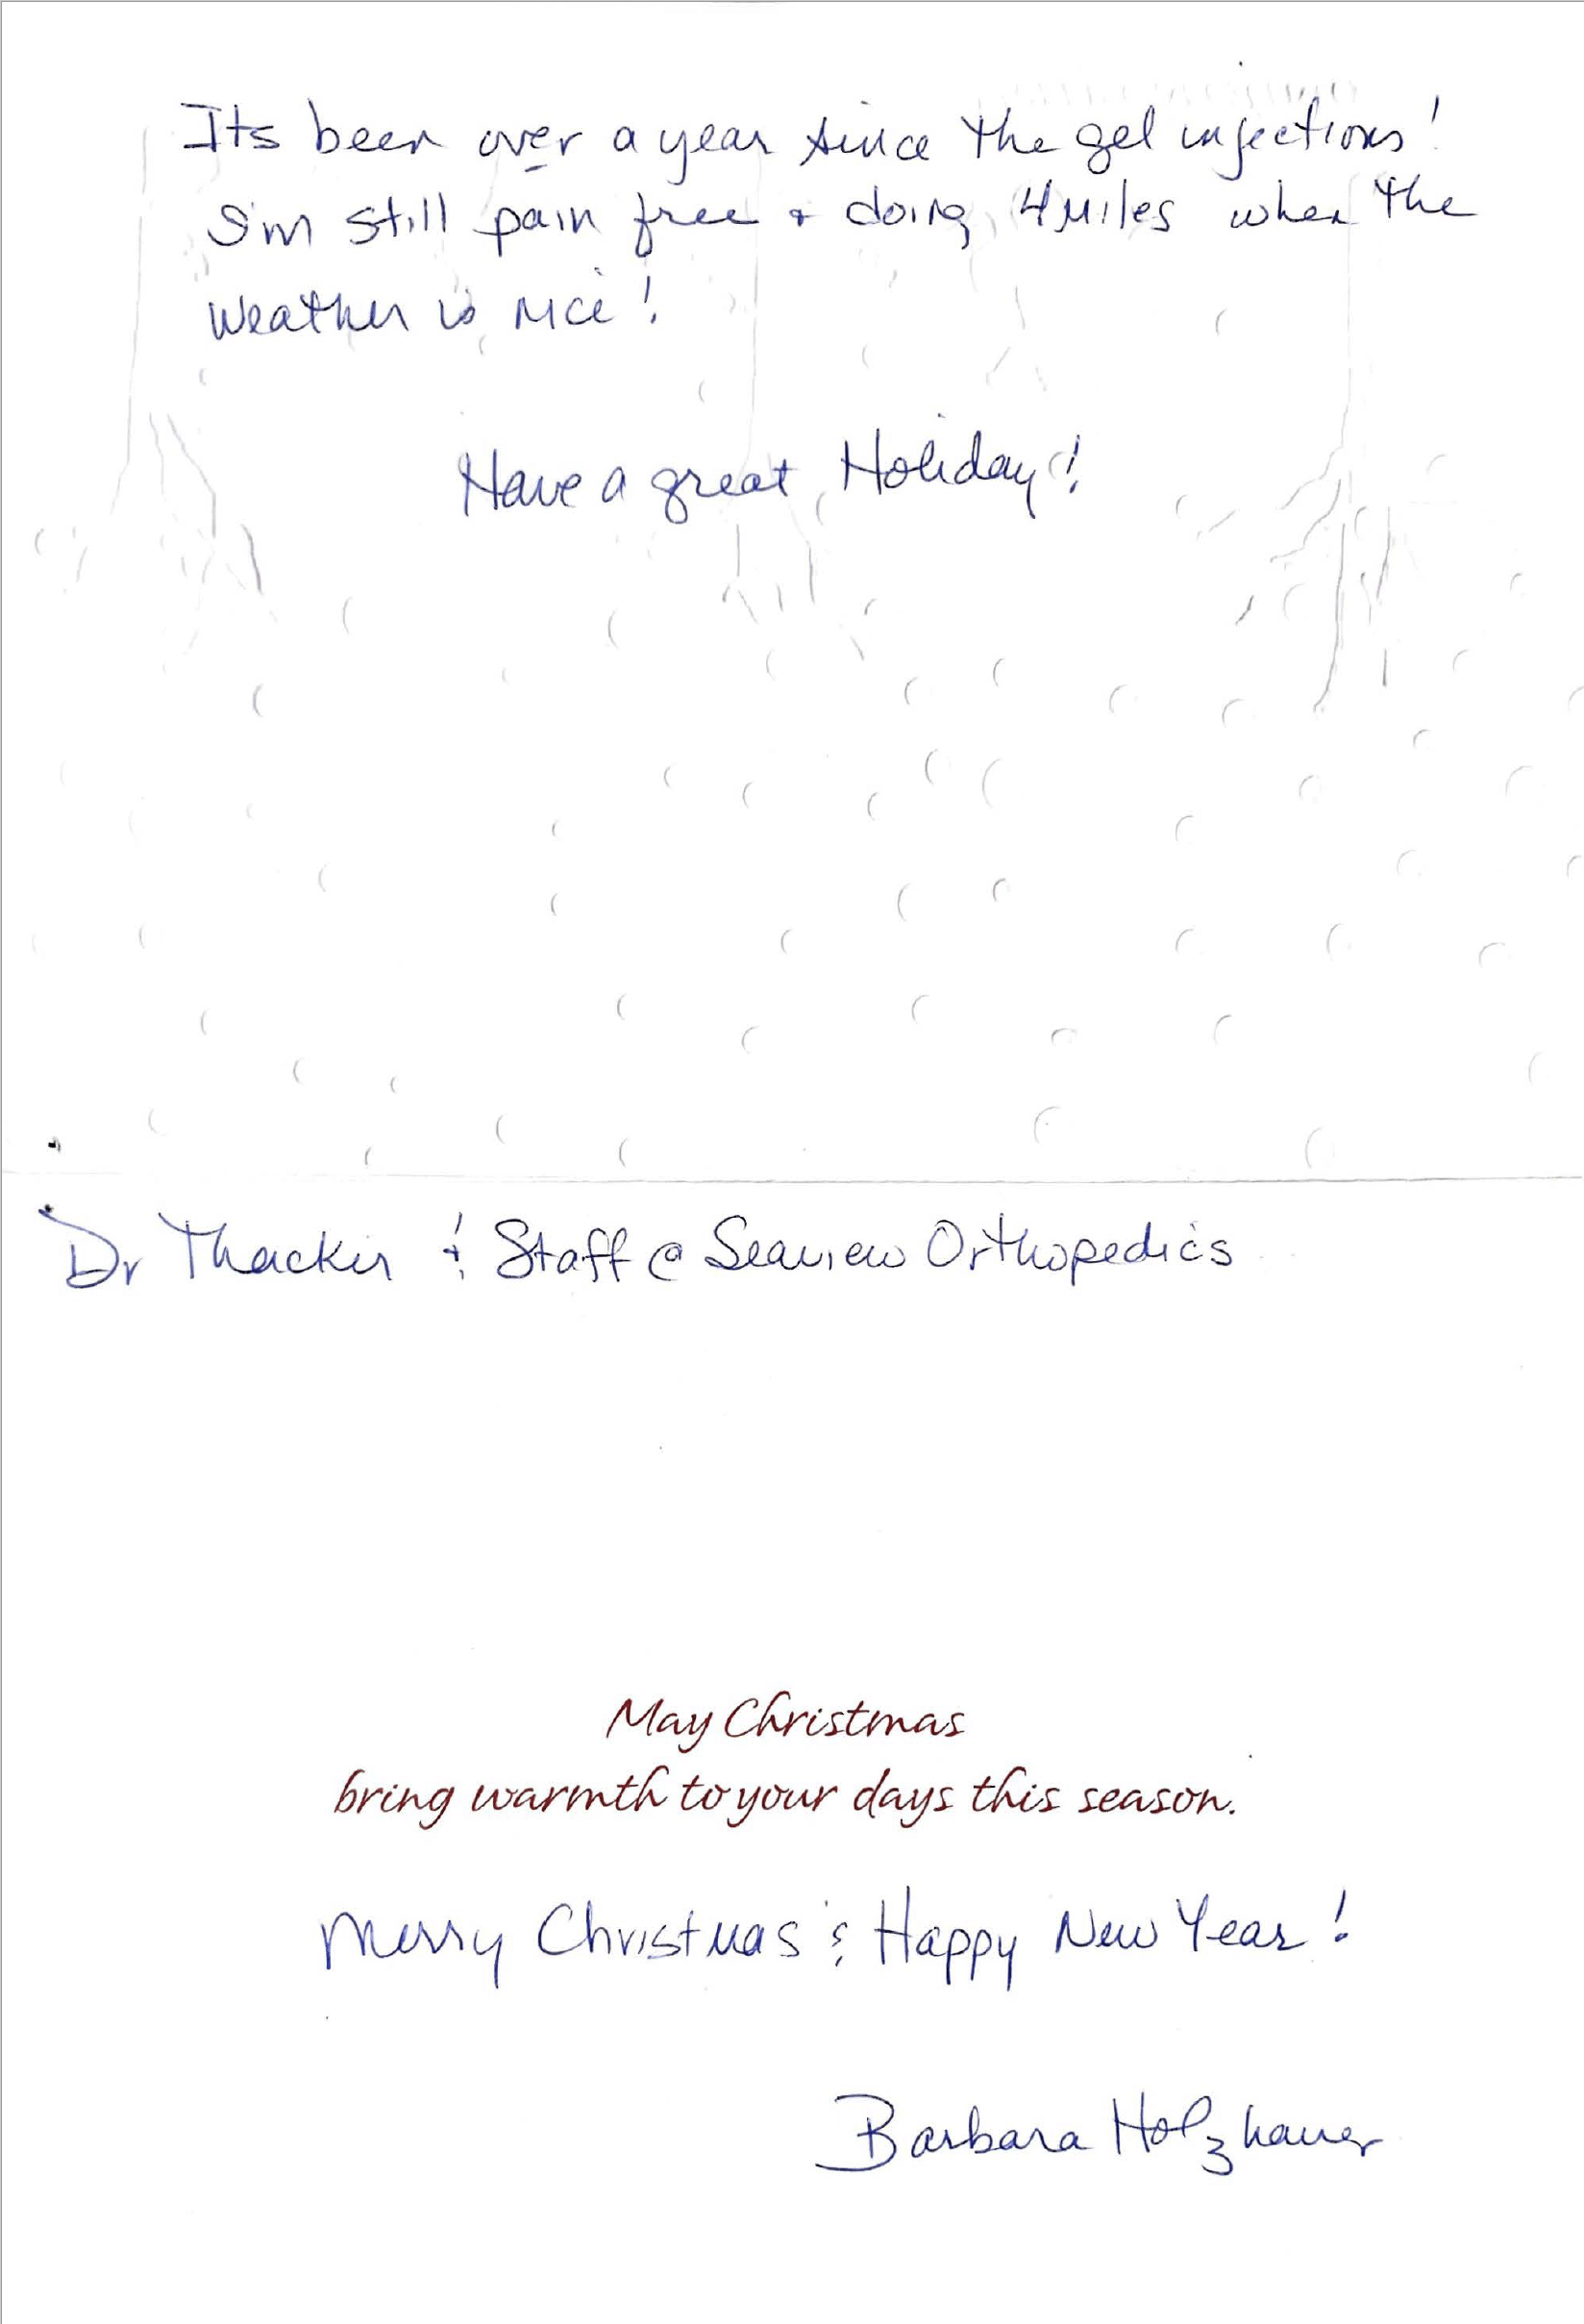 Its been over a year since the gel injections!
I'm still pain free + doing 4 miles when the
weather is nice!
Have a great Holiday!
Dr Thacker & Staff @ Seaview Orthopedics
May Christmas
bring warmth to your days this season.
Merry Christmas & Happy New Year!
Barbara Holzhauer